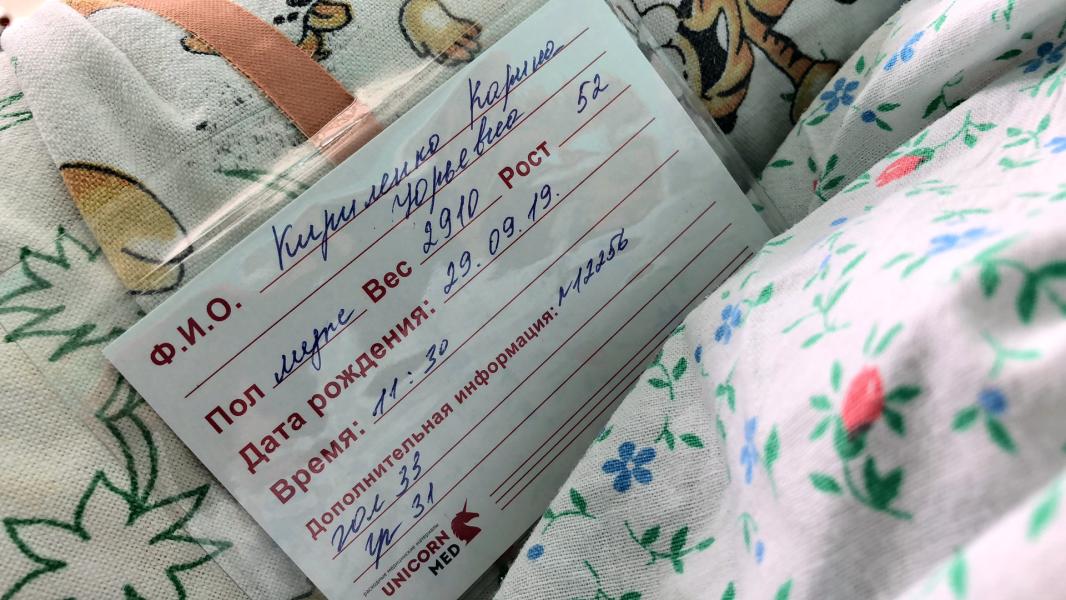 Ф.И.О. Кириленко Карина
Юрьевна
Пол муж Вес 2910 Рост 52
Дата рождения: 29.09.19.
Время: 11:30
Дополнительная информация: №12256
гол 33
гр 31
UNICORN
MED